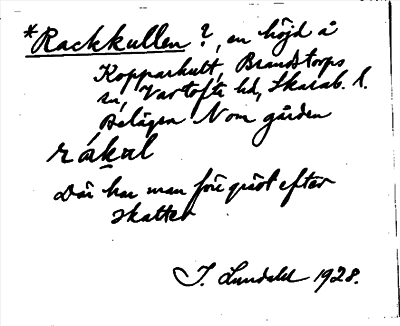 *Rackkullen?, en höjd å
Kopparhult, Brandstorps
sn, Vartofta hd, Skarab. l.
Belägen N om gården
råkul
Där har man förr grävt efter
skatter
J. Lundahl 1928.